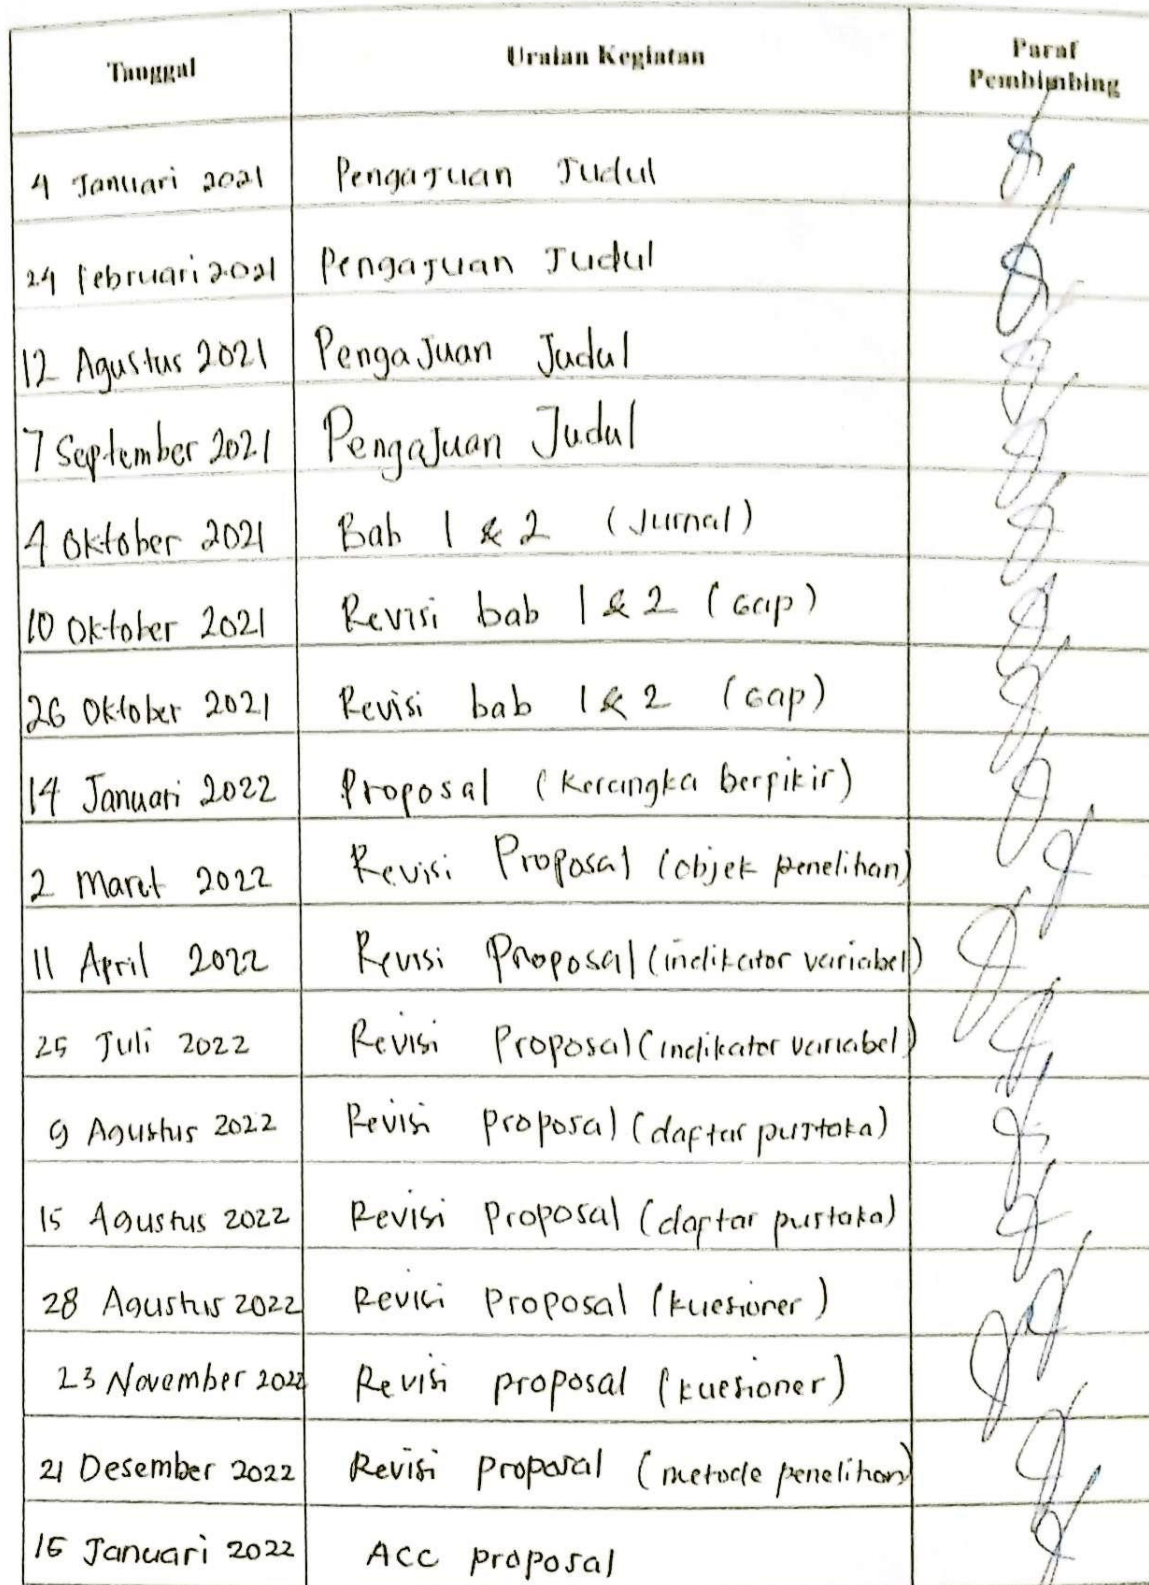 Tanggal Uraian Kegiatan Paraf
Pembimbing
4 Januari 2021 Pengajuan Judul
24 Februari 2021 Pengajuan Judul
12 Agustus 2021 Pengajuan Judul
7 September 2021 Pengajuan Judul
4 Oktober 2021 Bab 1 & 2 (Jurnal)
10 Oktober 2021 Revisi bab 1 & 2 (Gap)
26 Oktober 2021 Revisi bab 1 & 2 (Gap)
14 Januari 2022 Proposal (Kerangka berpikir)
2 Maret 2022 Revisi Proposal (objek penelitian)
11 April 2022 Revisi Proposal (indikator variabel)
25 Juli 2022 Revisi Proposal (indikator variabel)
9 Agustus 2022 Revisi proposal (daftar pustaka)
15 Agustus 2022 Revisi Proposal (daftar pustaka)
28 Agustus 2022 Revisi Proposal (kuesioner)
23 November 2022 Revisi proposal (kuesioner)
21 Desember 2022 Revisi proposal (metode penelitian)
15 Januari 2022 ACC proposal